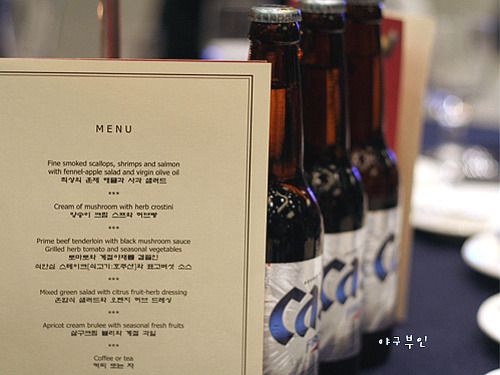 MENU
Fine smoked scallops, shrimps and salmon
with fennel-apple salad and virgin olive oil
***
Cream of mushroom with herb crostini
양송이 크림 스프와 허브빵
***
Prime beef tenderloin with black mushroom sauce
Grilled herb tomato and seasonal vegetables
토마토와 계절야채를 곁들인
***
Mixed green salad with citrus fruit-herb dressing
***
Apricot cream brulee with seasonal fresh fruits
***
Coffee or tea
커피 또는 차
Ca
Ca
Ca
야구부인